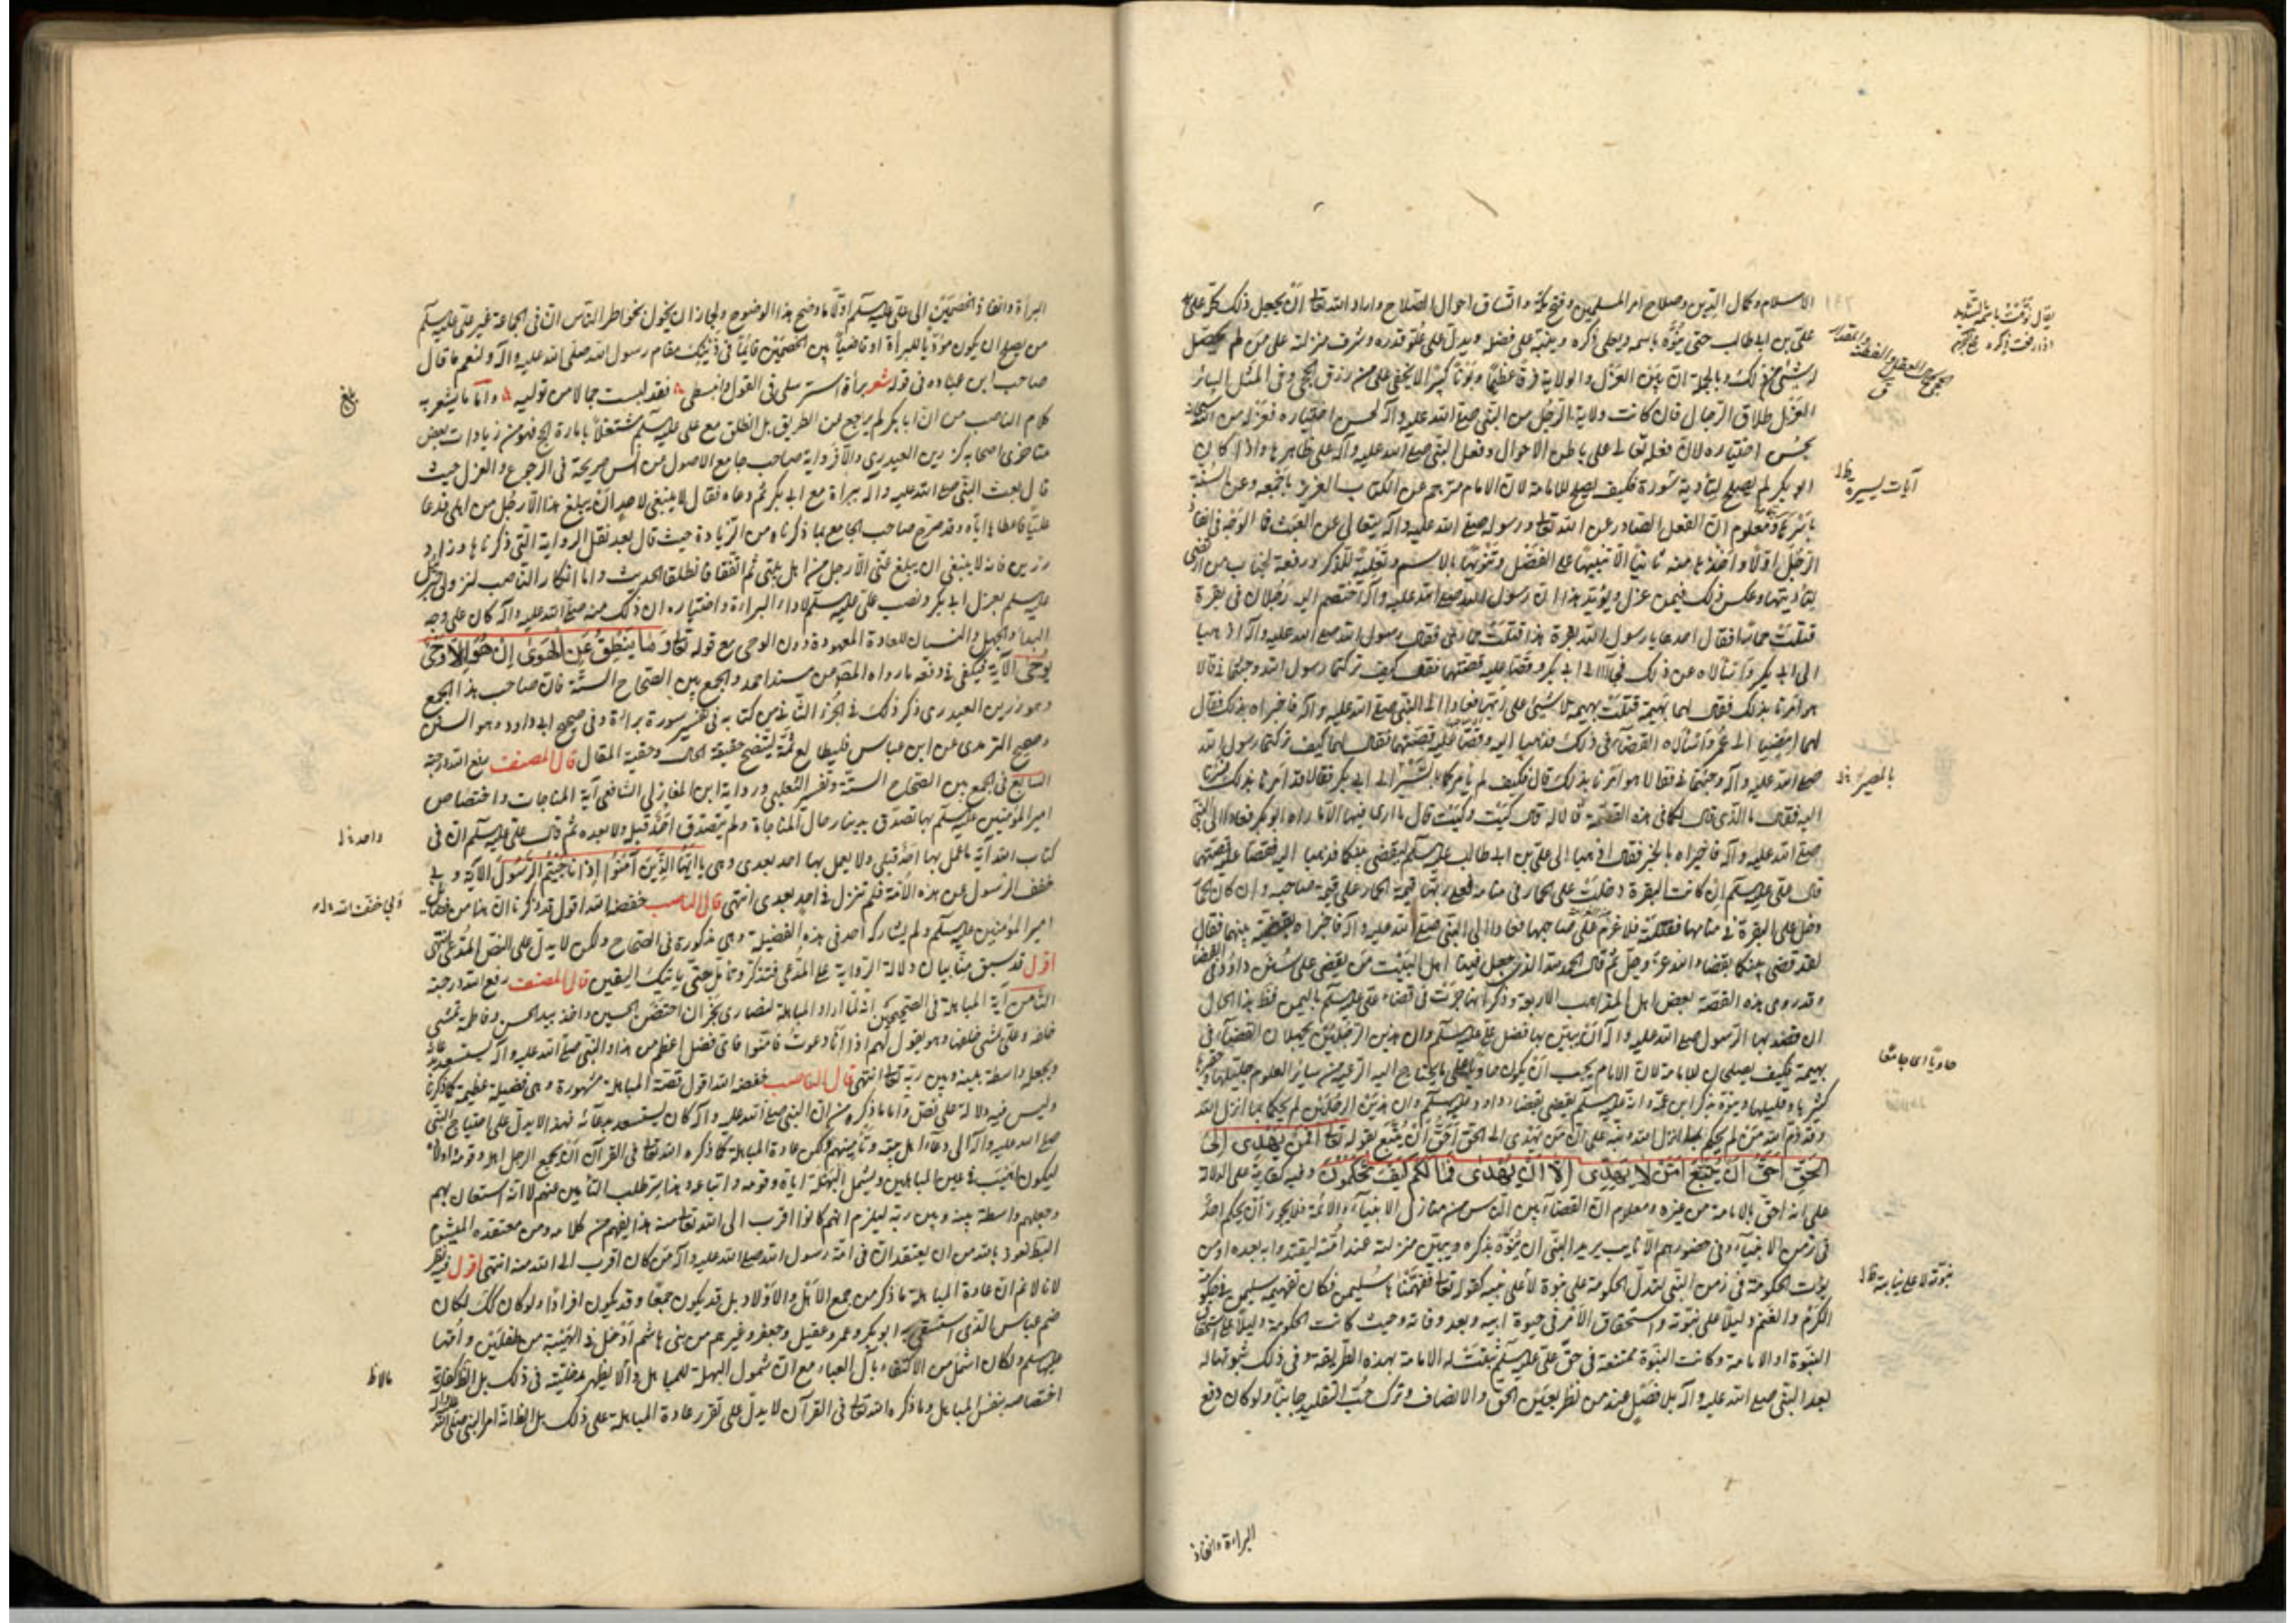 الاسلام وكمال الدين وصلاح امر المسلمين وفتح مكة واتساق احوال الصلاح واراد الله تعا ان يجعل ذلك
على بن ابيطالب حتى ينوّه باسمه ويعلى ذكره وينبّه على فضله ويدلّ على علوّ قدره وشرف منزلته على من لم يحصل
له شئ من ذلك وبالجملة ان بين العزل والولاية فرقا عظيما وبونا كثيرا لا يخفى على من رزق الحجى وفى المثل السائر
العزل طلاق الرجال فان كانت ولاية الرجل من النبى صلى الله عليه وآله لحسن اختياره فعزله من الله
بحسن اختياره لان فعله تعالى على باطن الاحوال وفعل النبى صلى الله عليه وآله على ظاهرها واذا كان
ابو بكر لم يصلح لتأدية سورة فكيف يصلح للامامة لان الامام مترجم عن الكتاب العزيز باجمعه وعن السنة
ومعلوم ان الفعل الصادر عن الله تعا ورسوله صلى الله عليه وآله يتعالى عن العبث فما الوجه فى انفاذ
الرجل اولا واخذها منه ثانيا الا تنبيها على الفضل وتنويها بالاسم وتعلية للذكر ورفعة لجناب من ارتضى
لتأديتها وعكس ذلك فيمن عزل ويؤيد هذا ان رسول الله صلى الله عليه وآله اختصم اليه رجلان فى بقرة
قتلت حمارا فقال احدهما يا رسول الله بقرة هذا قتلت حمارى فقال رسول الله صلى الله عليه وآله اذهبا
الى ابى بكر واسألاه عن ذلك فجاءا الى ابى بكر وقصّا عليه قصتهما فقال كيف تركتما رسول الله وجئتمانى قالا
هو امرنا بذلك فقال لهما بهيمة قتلت بهيمة لا شئ على ربها فعادا الى النبى صلى الله عليه وآله فاخبراه بذلك فقال
لهما امضيا الى عمر واسألاه القضاء فى ذلك فذهبا اليه وقصّا عليه قصتهما فقال لهما كيف تركتما رسول الله
صلى الله عليه وآله وجئتمانى فقالا هو امرنا بذلك قال فكيف لم يأمركما الى ابى بكر فقالا قد امرنا بذلك
اليه فقال ما الذى قال لكما فى هذه القصة قالا له قال كيت وكيت قال ما ارى فيها الا ما راه ابو بكر فعادا الى النبى
صلى الله عليه وآله فاخبراه بالخبر فقال اذهبا الى على بن ابيطالب عليه السلم ليقضى بينكما فذهبا اليه فقصّا عليه قصتهما
قال على عليه السلم ان كانت البقرة دخلت على الحمار فى منامه فعلى ربها قيمة الحمار على قيمة صاحبه وان كان الحمار
دخل على البقرة فى منامها فقتلته فلا غرم على صاحبها فعادا الى النبى صلى الله عليه وآله فاخبراه بقضيته بينهما فقال
لقد قضى بينكما بقضاء الله عز وجل ثم قال الحمد لله الذى جعل فينا اهل البيت من يقضى على سنن داود فى القضا
وقد روى هذه القصة بعض اهل المذاهب الاربعة وذكر انها جرت فى قضاء على عليه السلم باليمن فقط هذا الحال
ان قصد بها الرسول صلى الله عليه وآله ان يبين بها فضل على عليه السلم وان هذين الرجلين يجهلان القضاء فى
بهيمة فكيف يصلحان للامامة لان الامام يجب ان يكون حاويا على ما يحتاج اليه الرعية من سائر العلوم جليلها وحقيرها
كثيرها وقليلها ونوّه بذكر ابن عمه وانه عليه السلم يقضى بقضاء داود عليه السلم وان هذين الرجلين لم يحكما بما انزل الله
وقد ذم الله من لم يحكم بما انزل الله ونبّه على ان من يهدى الى الحق احق ان يتبع بقوله تعا افمن يهدى الى
الحق احق ان يتبع امن لا يهدى الا ان يهدى فما لكم كيف تحكمون وفيه كفاية على الدلالة
على انه احق بالامامة من غيره ومعلوم ان القضاء بين الناس من منازل الانبياء والائمة فلا يجوز ان يحكم احد
فى زمن الانبياء وفى حضورهم الا نايب يريد النبى ان ينوّه بذكره ويبين منزلته عند امته ليقتدوا به بعده او من
يؤت الحكومة فى زمن النبى لتدل الحكومة على نبوة لا على نيبه كقوله تعا ففهمناها سليمن فكان تفهيمه سليمن فى حكومة
الكرم والغنم دليلا على نبوته واستحقاق الامر فى حيوة ابيه وبعد وفاته وحيث كانت الحكومة دليلا على استحقاق
النبوة او الامامة وكانت النبوة ممتنعة فى حق على عليه السلم ثبتت له الامامة بهذه الطريقة وفى ذلك ثبوتها له
بعد النبى صلى الله عليه وآله بلا فصل عند من نظر بعين الحق والانصاف وترك حب التقليد جانبا ولو كان دفع
البراءة وانفاذ
آيات يسيرة
حاويا اى جامعا
البراءة وانفاذ الخصمين الى على عليه السلم اولا ما وضح هذا الوضوح ولجاز ان يخول بخواطر الناس ان فى الجماعة غير على عليه السلم
من يصلح ان يكون مؤديا للبراءة او قاضيا بين الخصمين قائما فى ذينك مقام رسول الله صلى الله عليه وآله ولنعم ما قال
صاحب ابن عباده فى قوله شعر براءة استرسلى فى القول وانبسطى فقد لبست جمالا من توليه واما ما يشعر به
كلام الناصب من ان ابا بكر لم يرجع من الطريق بل انطلق مع على عليه السلم مشتغلا بامارة الحج فهو من زيادات بعض
متاخرى اصحابه كرزين العبدرى والا فرواية صاحب جامع الاصول من انس صريحة فى الرجوع والعزل حيث
قال بعث النبى صلى الله عليه وآله ببراءة مع ابى بكر ثم دعاه فقال لا ينبغى لاحد ان يبلغ هذا الا رجل من اهلى فدعا
عليا فاعطاها اياه وقد صرح صاحب الجامع بما ذكرناه من الزيادة حيث قال بعد نقل الرواية التى ذكرناها وزاد
رزين فانه لا ينبغى ان يبلغ عنى الا رجل من اهل بيتى ثم اتفقا فانطلقا الحديث واما انكار الناصب لنزول جبرئيل
عليه السلم بعزل ابى بكر ونصب على عليه السلم لاداء البراءة واختياره ان ذلك منه صلى الله عليه وآله كان على وجه
البداء والجهل والنسيان للعادة المعهودة دون الوحى مع قوله تعا وما ينطق عن الهوى ان هو الا وحى
يوحى الآية فيكفى فى دفعه ما رواه المصنف من مسند احمد والجمع بين الصحاح الستة فان صاحب هذا الجمع
وهو رزين العبدرى ذكر ذلك فى الجزء الثانى من كتابه فى تفسير سورة براءة وفى صحيح ابى داود وهو السنن
وصحيح الترمذى عن ابن عباس فليطالع ثمة ليتضح حقيقة الحال وحقية المقال قال المصنف رفع الله درجته
السابع فى الجمع بين الصحاح الستة وتفسير الثعلبى ورواية ابن المغازلى الشافعى آية المناجات واختصاص
امير المؤمنين عليه السلم بها تصدق بدينار حال المناجاة ولم يتصدق احد قبله ولا بعده ثم قال على عليه السلم ان فى
كتاب الله آية ما عمل بها احد قبلى ولا يعمل بها احد بعدى وهى يا ايها الذين آمنوا اذا ناجيتم الرسول الآية وبى
خفف الرسول عن هذه الامة فلم تنزل فى احد بعدى انتهى قال الناصب خفضه الله اقول قد ذكرنا ان هذا من فضايل
امير المؤمنين عليه السلم ولم يشاركه احد فى هذه الفضيلة وهى مذكورة فى الصحاح ولكن لا يدل على النص المدعى انتهى
اقول قد سبق منا بيان دلالة الرواية على المدعى فتذكر وتأمل حتى يأتيك اليقين قال المصنف رفع الله درجته
الثامن آية المباهلة فى الصحيحين انه لما اراد المباهلة لنصارى نجران احتضن الحسين واخذ بيد الحسن وفاطمة تمشى
خلفه وعلى يمشى خلفها وهو يقول لهم اذا انا دعوت فامنوا فاى فضل اعظم من هذا والنبى صلى الله عليه وآله يستسعد بدعائه
ويجعله واسطة بينه وبين ربه تعا انتهى قال الناصب خفضه الله اقول قصة المباهلة مشهورة وهى فضيلة عظيمة كما ذكرنا
وليس فيه دلالة على نص واما ما ذكره من ان النبى صلى الله عليه وآله كان يستسعد بدعائه فهذا لا يدل على احتياج النبى
صلى الله عليه وآله الى دعاء اهل بيته وتأمينهم ولكن عادة المباهلة كما ذكره الله تعا فى القرآن ان يجمع الرجل اهله وقومه واولاده
ليكون اهيب فى اعين المباهلين ويشمل البهلة اياه وقومه واتباعه وهذا سر طلب التأمين عنهم لا انه استعان بهم
وجعلهم واسطة بينه وبين ربه ليلزم انهم كانوا اقرب الى الله تعا منه هذا يفهم من كلامه ومن معتقده الميشوم
نعوذ بالله من ان يعتقد ان فى امة رسول الله صلى الله عليه وآله من كان اقرب الى الله منه انتهى اقول فيه نظر
لانا لا نم ان عادة المباهلة ما ذكر من جمع الاهل والاولاد بل قد يكون جمعا وقد يكون افرادا ولو كان كذلك لكان
ضم عباس الذى استسقى به ابو بكر وعمر وعقيل وجعفر وغيرهم من بنى هاشم ادخل فى الهيبة من طفلين وامهما
عليهم السلم ولكان اشمل من الاكتفاء بآل العباء مع ان شمول البهلة للمباهل واله لا يظهر مدخليته فى ذلك بل
اختصاصه بنفس المباهل وما ذكره الله تعا فى القرآن لا يدل على تقرر عادة المباهلة على ذلك بل الظ انه امر النبى صلى الله
بلغ